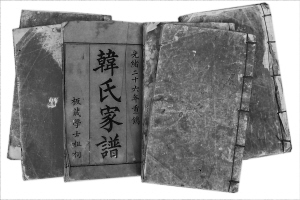 光緒二十六年
韓氏家譜
板藏學士祖祠